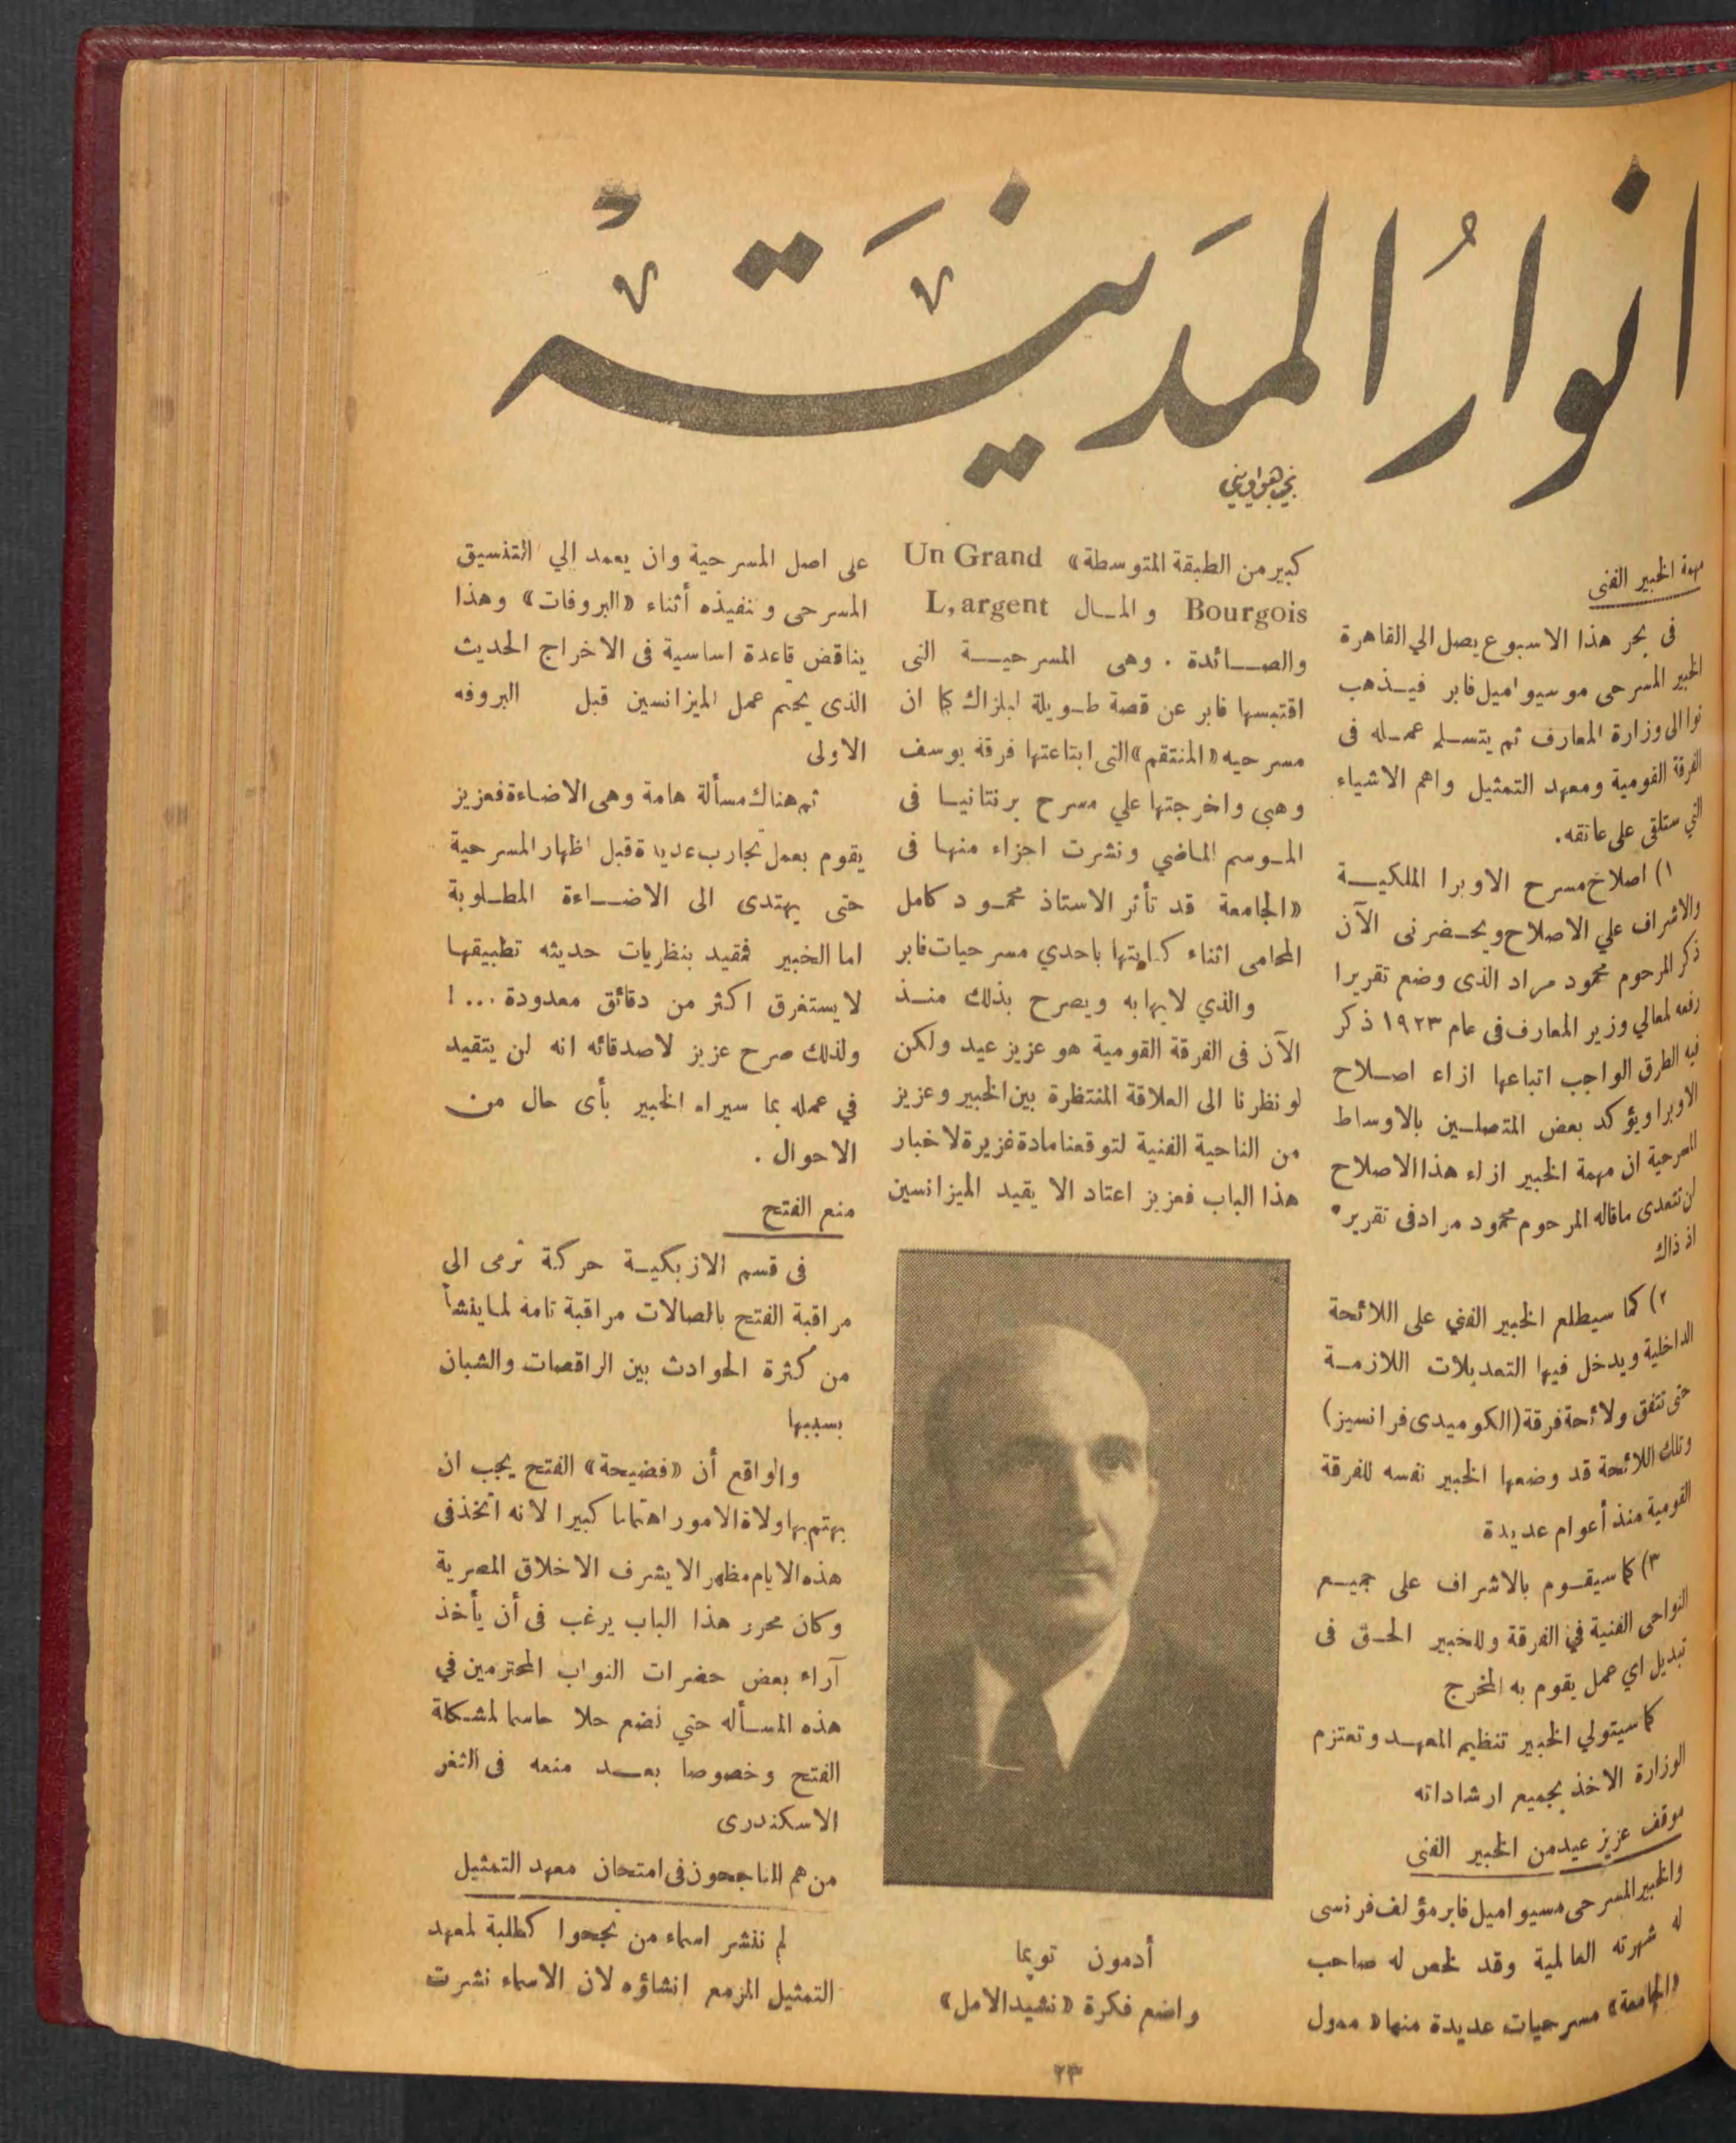 انوار المدينة
مهمة الخبير الفنى
فى بحر هذا الاسبوع يصل الي القاهرة
الخبير المسرحى موسيو اميل فابر فيـذهب
توا الى وزارة المعارف ثم يتسـلم عمـله فى
الفرقة القومية ومعهد التمثيل واهم الاشياء
التي ستلقى على عاتقه.
١) اصلاح مسرح الاوبرا الملكيـة
والاشراف علي الاصلاح ويحـضرنى الآن
ذكر المرحوم محمود مراد الذى وضع تقريرا
رفعه لمعالي وزير المعارف فى عام ١٩٢٣ ذكر
فيه الطرق الواجب اتباعها ازاء اصـلاح
الاوبرا ويؤكد بعض المتصلـين بالاوساط
المسرحية ان مهمة الخبير ازاء هذا الاصلاح
لن تتعدى ماقاله المرحوم محمود مراد فى تقريره
اذ ذاك
٢) كما سيطلع الخبير الفني على اللائحة
الداخلية ويدخل فيها التعديلات اللازمـة
حتى تتفق ولائحة فرقة (الكوميدى فرانسيز)
وتلك اللائحة قد وضعها الخبير نفسه للفرقة
القومية منذ أعوام عديدة
٣) كما سيقـوم بالاشراف على جميـع
النواحى الفنية في الفرقة وللخبير الحـق فى
تبديل اي عمل يقوم به المخرج
كما سيتولي الخبير تنظيم المعهـد وتعتزم
الوزارة الاخذ بجميع ارشاداته
موقف عزيز عيد من الخبير الفنى
والخبير المسرحى مسيو اميل فابر مؤلف فرنسى
له شهرته العالمية وقد لخص له صاحب
«الجامعة» مسرحيات عديدة منها « ممول
كبير من الطبقة المتوسطة» Un Grand
Bourgois والمـال L,argent
والصـائدة . وهى المسرحيـة التى
اقتبسها فابر عن قصة طـويلة لبلزاك كما ان
مسرحيه «المنتقم» التى ابتاعتها فرقة يوسف
وهبي واخرجتها علي مسرح برنتانيـا فى
المـوسم الماضي ونشرت اجزاء منهـا فى
«الجامعة قد تأثر الاستاذ محمـود كامل
المحامى اثناء كتابتها باحدي مسرحيات فابر
والذي لايهابه ويصرح بذلك منـذ
الآن فى الفرقة القومية هو عزيز عيد ولكن
لو نظرنا الى العلاقة المنتظرة بين الخبير وعزيز
من الناحية الفنية لتوقعنا مادة غزيرة لاخبار
هذا الباب فعزيز اعتاد الا يقيد الميزانسين
أدمون تويما
واضع فكرة «نشيد الامل»
على اصل المسرحية وان يعمد الي التنسيق
المسرحى وتنفيذه أثناء «البروفات» وهذا
يناقض قاعدة اساسية فى الاخراج الحديث
الذى يحتم عمل الميزانسين قبل البروفه
الاولى
ثم هناك مسألة هامة وهى الاضاءة فعزيز
يقوم بعمل تجارب عديدة قبل اظهار المسرحية
حتى يهتدى الى الاضـاءة المطـلوبة
اما الخبير فمقيد بنظريات حديثه تطبيقهـا
لا يستغرق اكثر من دقائق معدودة ... !
ولذلك صرح عزيز لاصدقائه انه لن يتقيد
في عمله بما سيراه الخبير بأى حال من
الاحوال .
منع الفتح
فى قسم الازبكيـة حركة ترمى الى
مراقبة الفتح بالصالات مراقبة تامة لما ينشأ
من كثرة الحوادث بين الراقصات والشبان
بسببها
والواقع أن «فضيحة» الفتح يجب ان
يهتم بها ولاة الامور اهتماما كبيرا لانه اتخذ فى
هذه الايام مظهرا لايشرف الاخلاق المصرية
وكان محرر هذا الباب يرغب فى أن يأخذ
آراء بعض حضرات النواب المحترمين في
هذه المسـأله حتي نضع حلا حاسما لمشكلة
الفتح وخصوصا بعـد منعه فى الثغر
الاسكندرى
من هم الناجحون فى امتحان معهد التمثيل
لم ننشر اسماء من نجحوا كطلبة لمعهد
التمثيل المزمع انشاؤه لان الاسماء نشرت
٢٣